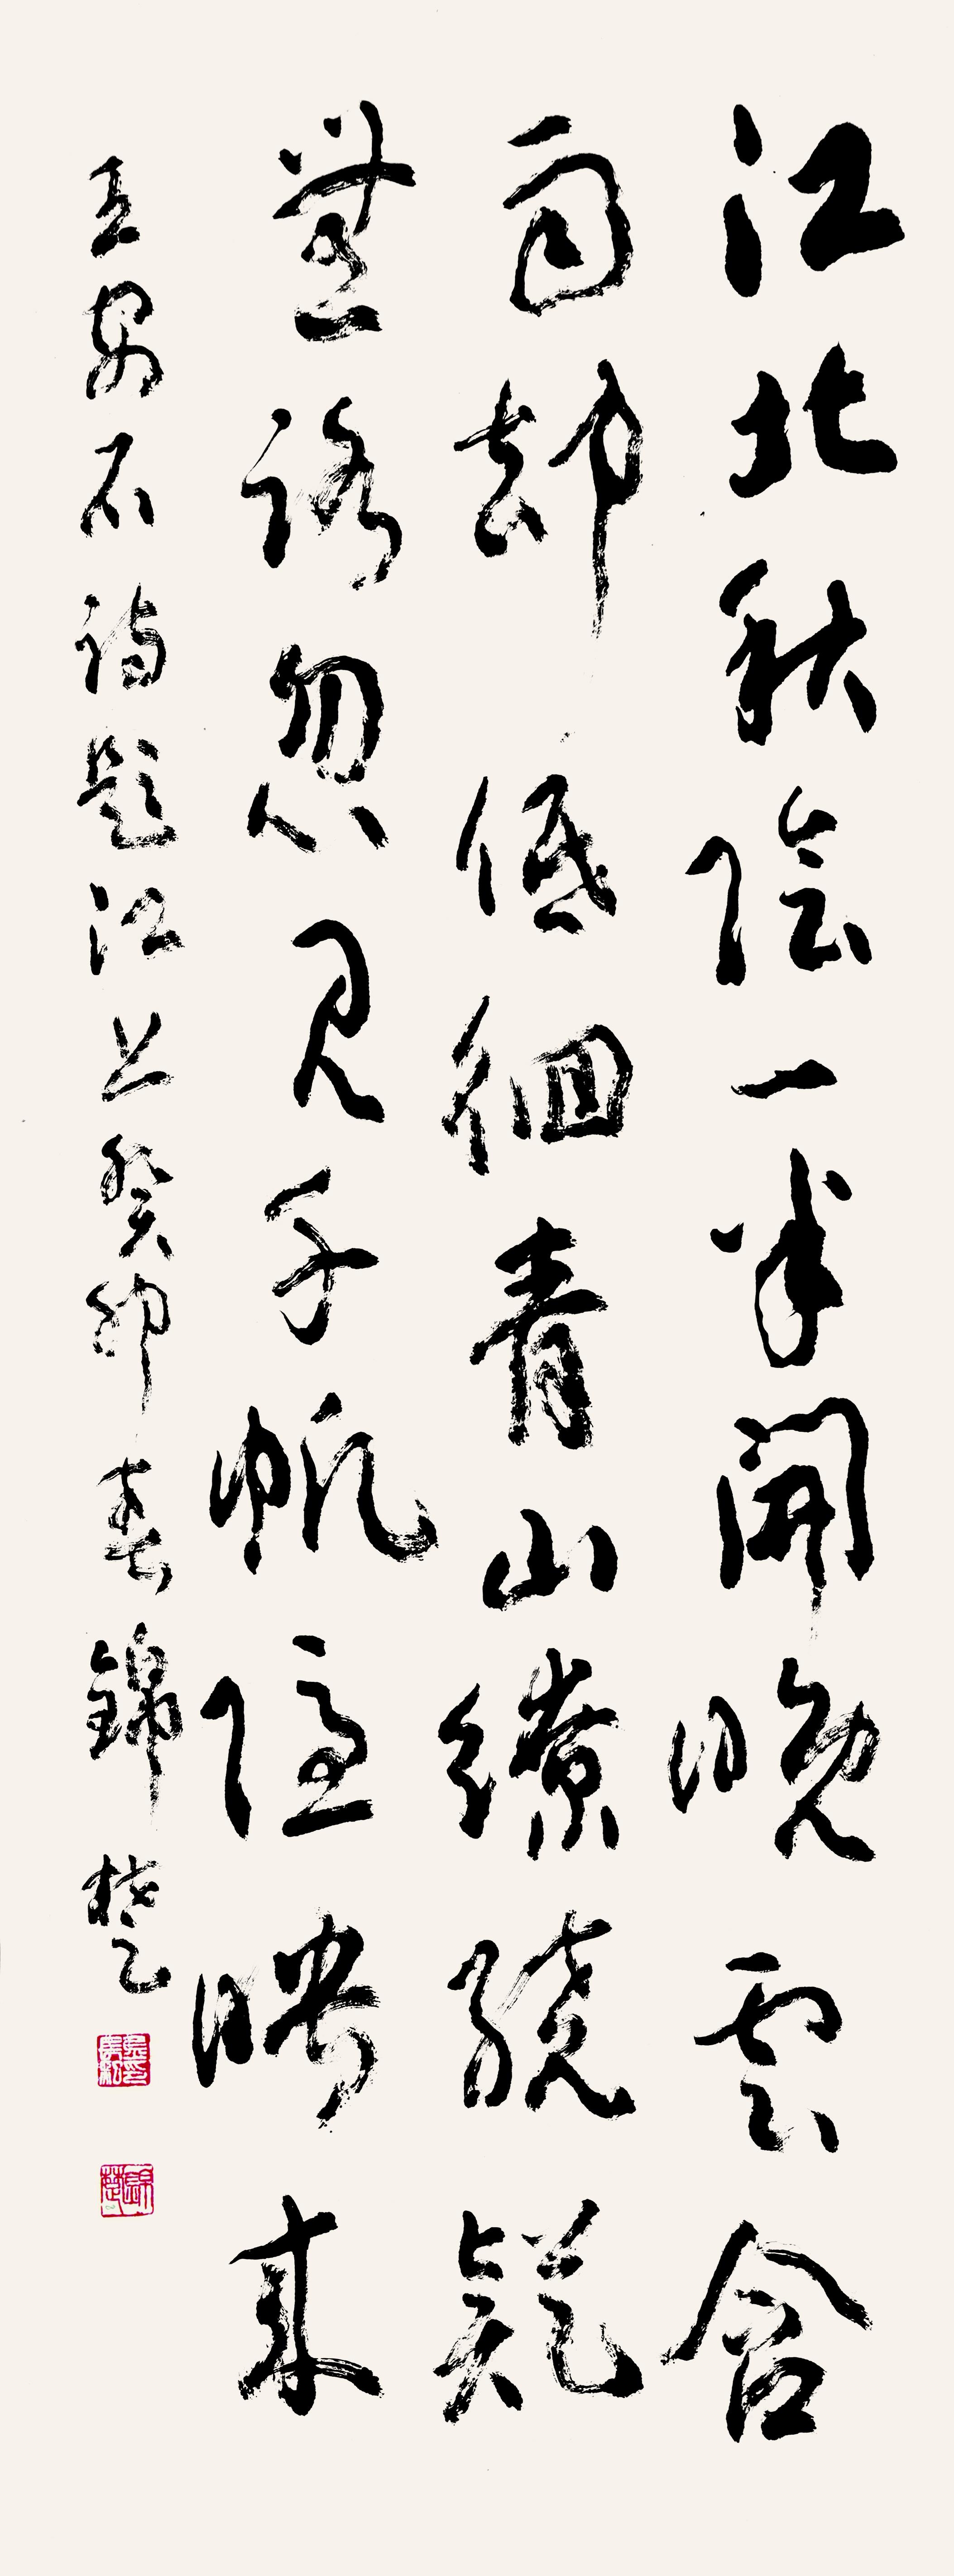 江北秋陰一半開晚雲含
雨却低徊青山繚繞疑
無路忽見千帆隱映來
王安石詩題江上癸卯春錦楚